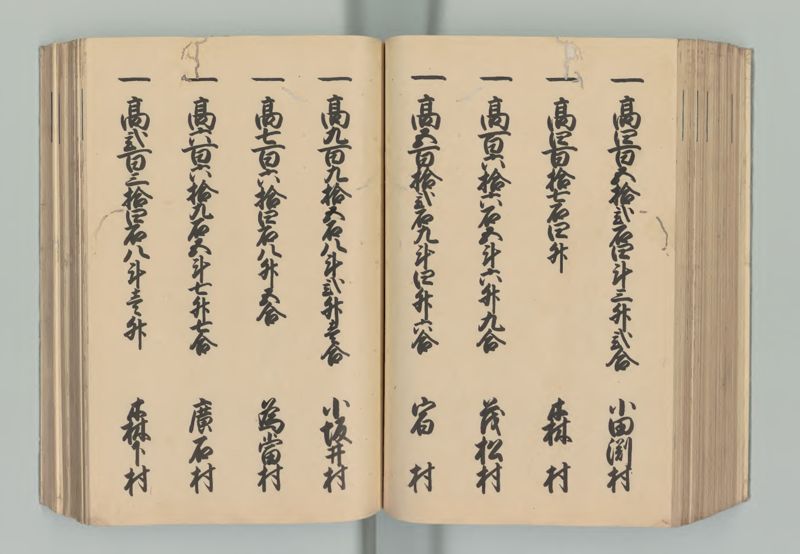 一 高四百五拾弐石四斗三升弐合 小田渕村
一 高四百拾七石四升 森村
一 高百六拾六石五斗六升九合 茂松村
一 高五百拾弐石九斗四升六合 宿村
一 高九百九拾五石八斗弐升壱合 小坂井村
一 高七百六拾四石八升五合 為當村
一 高六百六拾九石五斗七升七合 廣石村
一 高弐百三拾四石八斗壱升 森下村